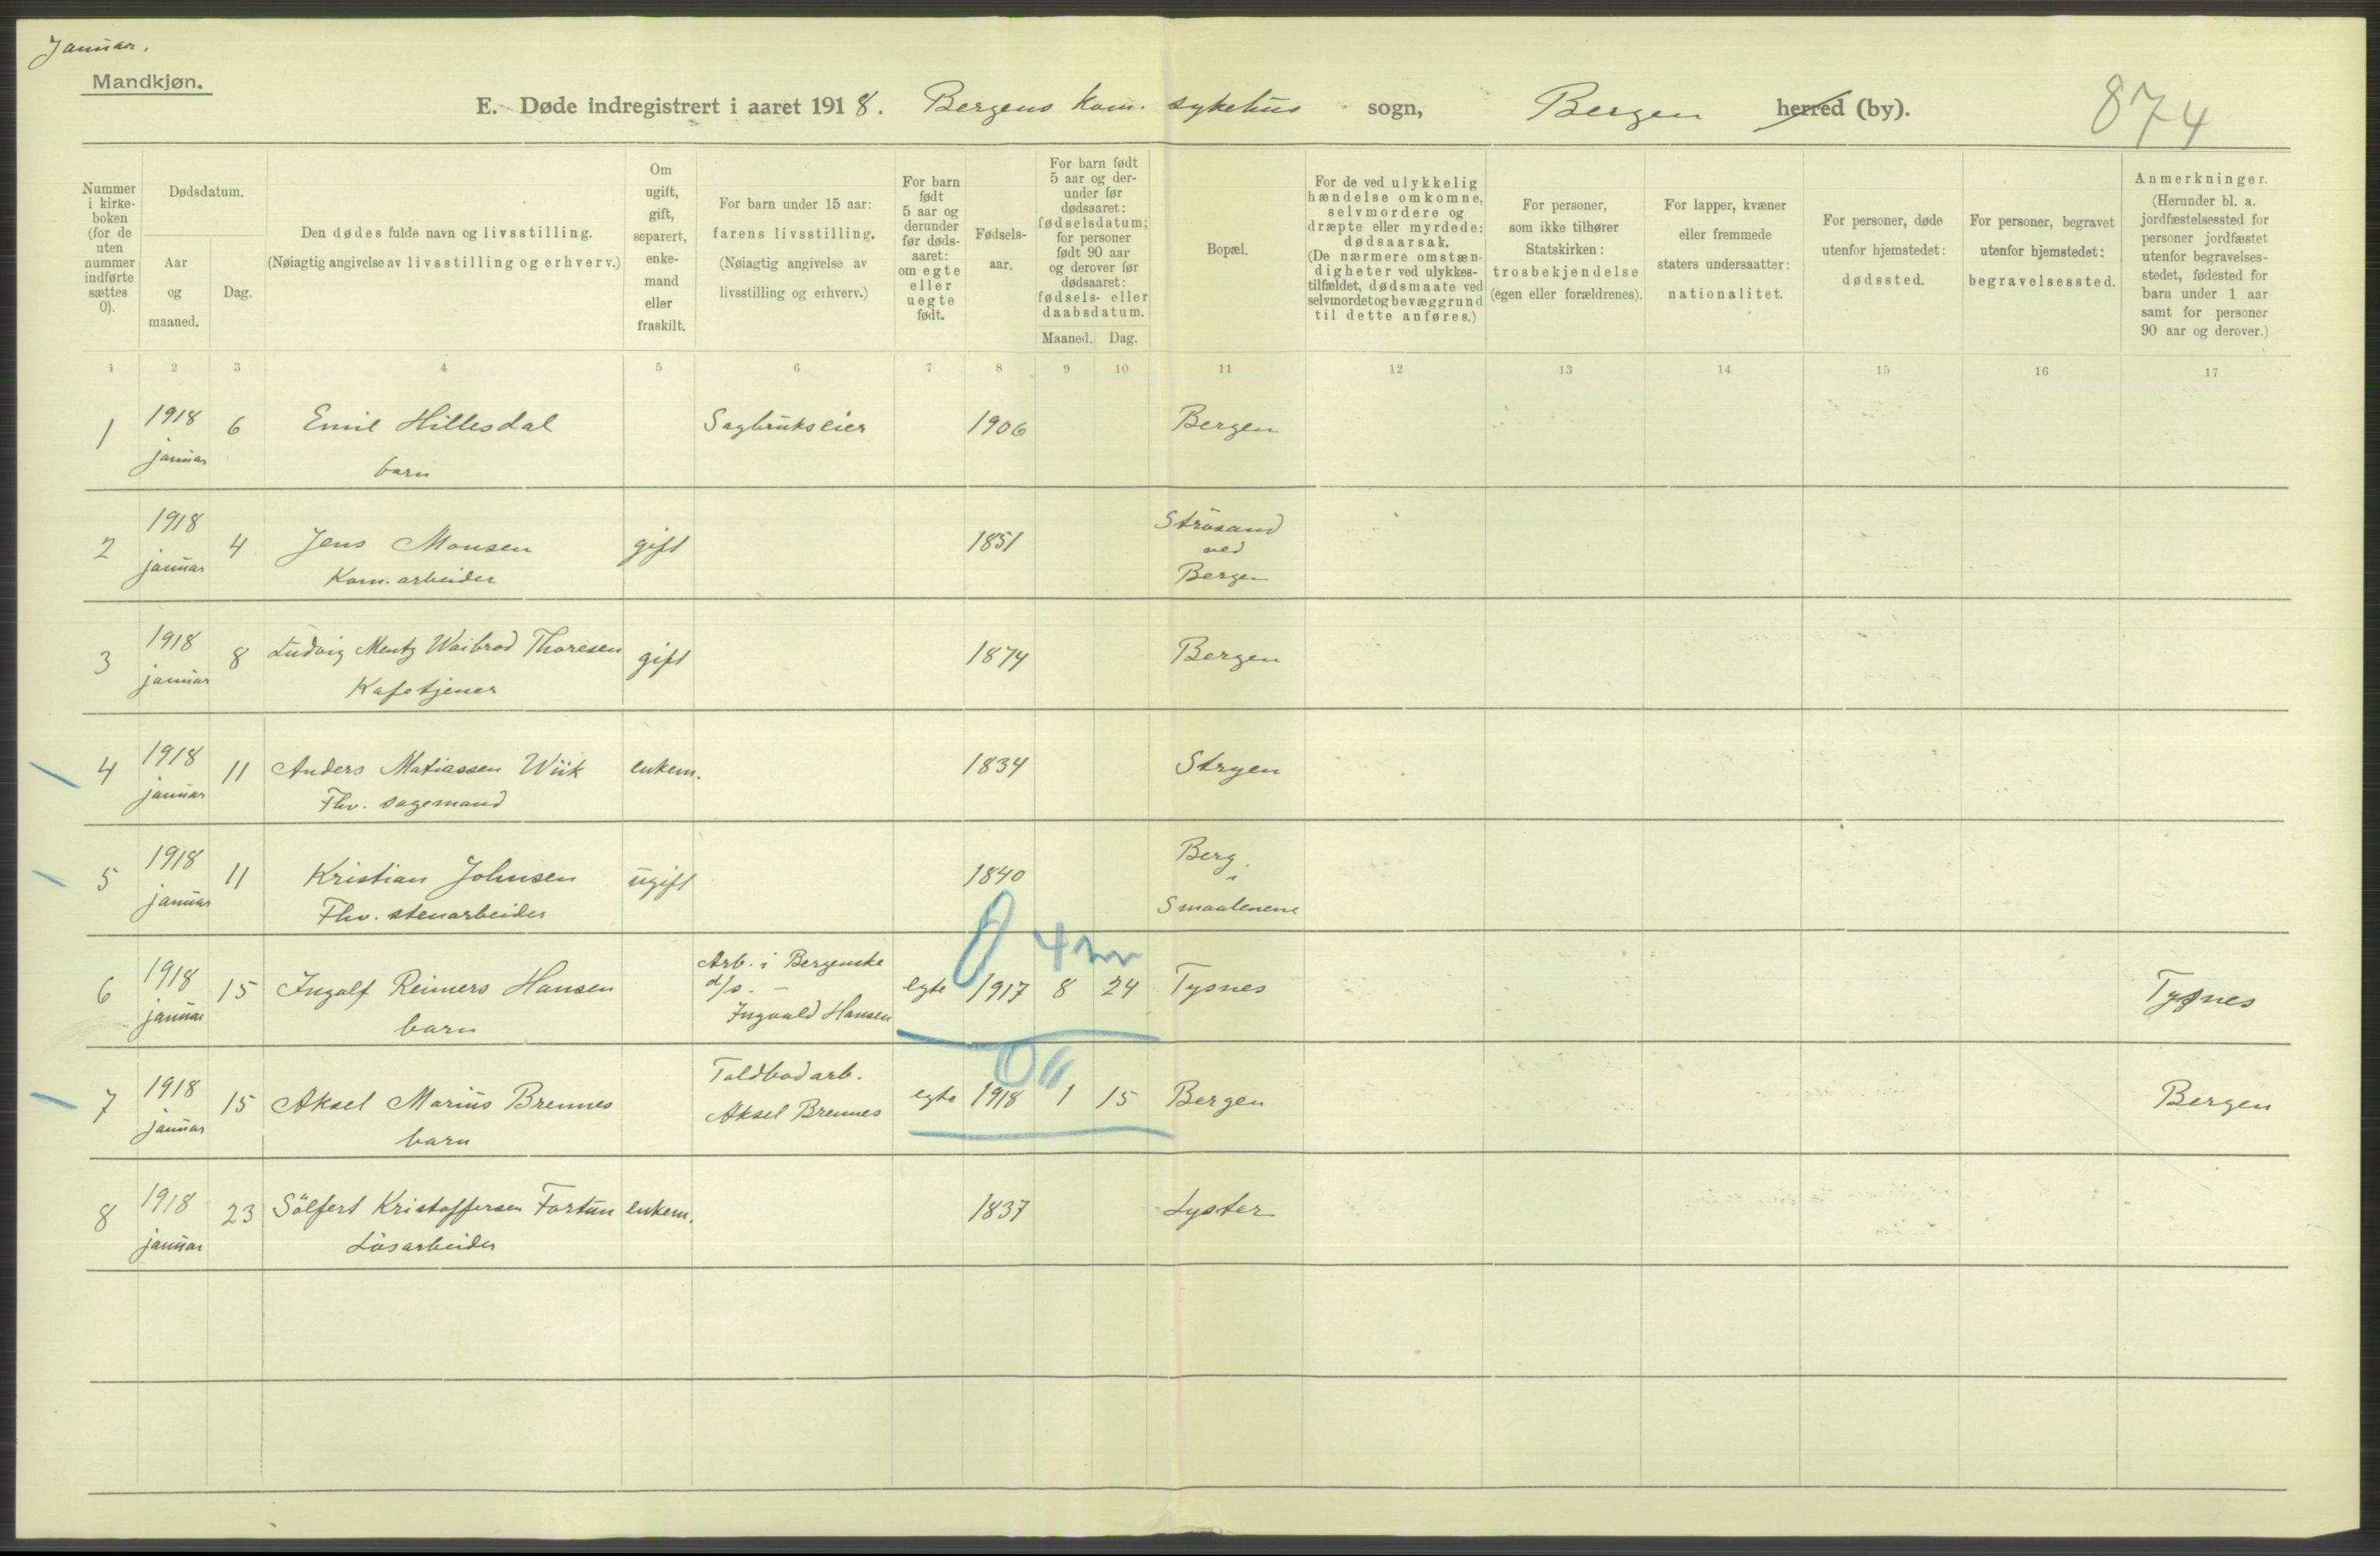 Januar.
Mandkjøn.
E. Døde indregistrert i aaret 1918. Bergens kom. sykehus sogn, Bergen herred (by).
874
Nummer i kirkeboken (for de uten nummer indførte sættes 0).
Dødsdatum.
Aar og maaned.
Dag.
Den dødes fulde navn og livsstilling.
(Nøiagtig angivelse av livsstilling og erhverv.)
Om ugift, gift, separert, enkemand eller fraskilt.
For barn under 15 aar: farens livsstilling.
(Nøiagtig angivelse av livsstilling og erhverv.)
For barn født 5 aar og derunder før dødsaaret: om egte eller uegte født.
Fødselsaar.
For barn født 5 aar og derunder før dødsaaret: fødselsdatum; for personer født 90 aar og derover før dødsaaret: fødsels- eller daabsdatum.
Maaned. Dag.
Bopæl.
For de ved ulykkelig hændelse omkomne, selvmordere og dræpte eller myrdede: dødsaarsak.
(De nærmere omstændigheter ved ulykkestilfældet, dødsmaate ved selvmordet og bevæggrund til dette anføres.)
For personer, som ikke tilhører Statskirken: trosbekjendelse (egen eller forældrenes).
For lapper, kvæner eller fremmede staters undersaatter: nationalitet.
For personer, døde utenfor hjemstedet: dødssted.
For personer, begravet utenfor hjemstedet: begravelsessted.
Anmerkninger.
(Herunder bl. a. jordfæstelsessted for personer jordfæstet utenfor begravelsesstedet, fødested for barn under 1 aar samt for personer 90 aar og derover.)
1 2 3 4 5 6 7 8 9 10 11 12 13 14 15 16 17
1 1918 januar 6 Emil Hillesdal Sagbrukseier 1906 Bergen
barn
2 1918 januar 4 Jens Monsen gift 1851 Strøsand ved Bergen
Kom. arbeider
3 1918 januar 8 Ludvig Mentz Waibrod Thoresen gift 1874 Bergen
Kafetjener
4 1918 januar 11 Anders Matiassen Wiik enkem. 1834 Stryen
Fhv. sagemand
5 1918 januar 11 Kristian Johnsen ugift 1840 Berg i Smaalenene
Fhv. stenarbeider
0 4 m
6 1918 januar 15 Ingolf Reimers Hansen Arb. i Bergenske d/s. - Ingvald Hansen egte 1917 8 24 Tysnes Tysnes
barn
0
7 1918 januar 15 Aksel Marius Brennes Toldbodarb. Aksel Brennes egte 1918 1 15 Bergen Bergen
barn
8 1918 januar 23 Sölfert Kristoffersen Fortun enkem. 1837 Lyster
Løsarbeider